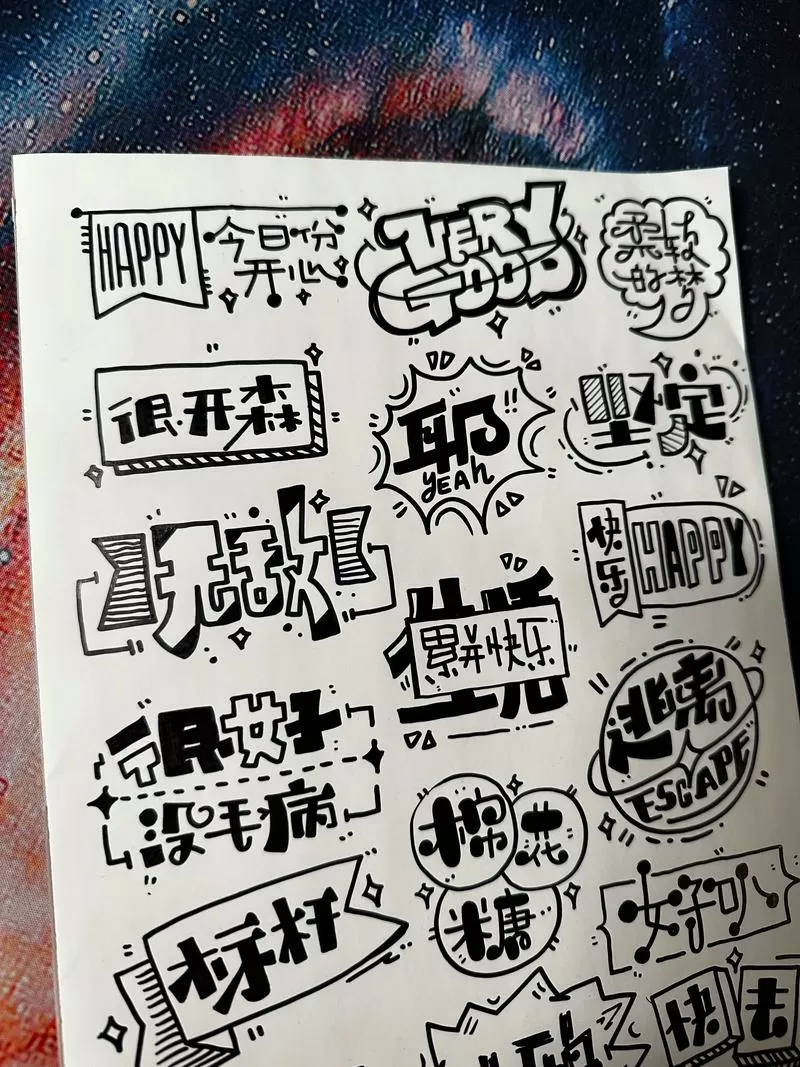 HAPPY
今日份
开心
VERY
GOOD
柔软
的梦
很开森
耶!!
YEAH
坚定
无敌
快乐
HAPPY
生活
累并快乐
很好
没毛病
逃离
ESCAPE
棉花
糖
标杆
好叭
快去